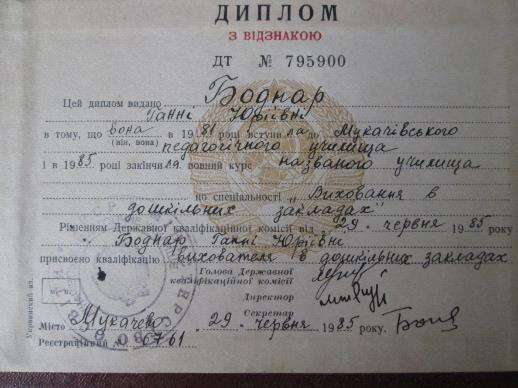 ДИПЛОМ
З ВІДЗНАКОЮ
ДТ № 795900
Цей диплом видано Боднар
Ганні Юріївні
в тому, що вона в 1981 році вступила до Мукачівського
(він, вона) педагогічного училища
і в 1985 році закінчила повний курс названого училища
по спеціальності „Виховання в
дошкільних закладах"
Рішенням Державної кваліфікаційної комісії від 29 червня 1985 року
Боднар Ганні Юріївні
присвоєно кваліфікацію вихователя в дошкільних закладах
Голова Державної
кваліфікаційної комісії
Директор
Секретар
Місто Мукачев 29 червня 1985 року.
Реєстраційний № 6761